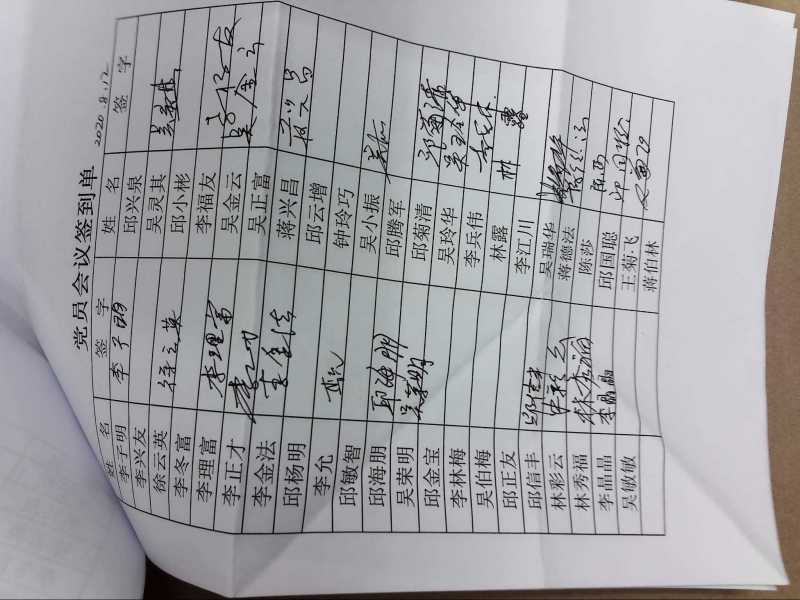 党员会议签到单
2020.8.12
姓名 签字 姓名 签字
李子明 李子明 邱兴泉
李兴友 吴灵其 吴灵其
徐云英 徐云英 邱小彬
李冬富 李福友 李福友
李理富 李理富 吴金云 吴金云
李正才 李正才 吴正富
李金法 李金法 蒋兴昌
邱杨明 邱云增
李允 李允 钟玲巧
邱敏智 吴小振
邱海朋 邱海朋 邱腾军
吴荣明 吴荣明 邱菊清 邱菊清
邱金宝 吴玲华 吴玲华
李林梅 李兵伟 李兵伟
吴伯梅 林露 林露
邱正友 李江川
邱信丰 邱信丰 吴瑞华
林彩云 林彩云 蒋德法 蒋德法
林秀福 林秀福 陈莎
李晶晶 李晶晶 邱国聪 邱国聪
吴敏敏 王菊飞
蒋伯林